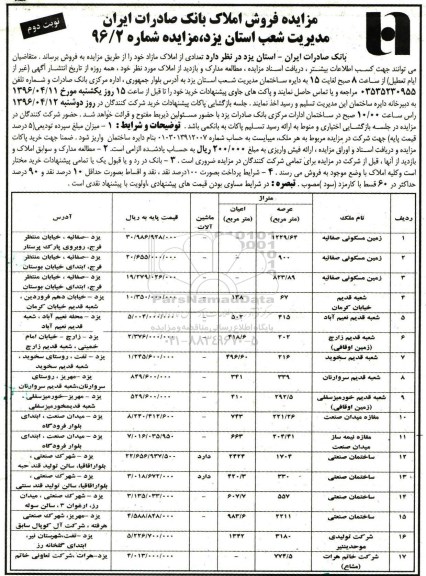 نوبت دوم
مزایده فروش املاک بانک صادرات ایران
مدیریت شعب استان یزد،مزایده شماره ۹۶/۲
بانک صادرات ایران - استان یزد در نظر دارد تعدادی از املاک مازاد خود را از طریق مزایده به فروش برساند. متقاضیان
می توانند جهت کسب اطلاعات بیشتر، دریافت اسناد مزایده، مطالعه مدارک و بازدید از املاک مورد نظر خود، همه روزه از تاریخ انتشار آگهی (غیر از
ایام تعطیل) از ساعت ۸ صبح لغایت ۱۵ به دایره ساختمان مدیریت شعب استان یزد به آدرس بلوار جمهوری، اداره مرکزی بانک صادرات و یا شماره تلفن
۰۳۵۳۵۲۳۰۹۵۵ مراجعه و یا تماس حاصل نمایند و پاکت های حاوی پیشنهادات خرید خود را تا قبل از ساعت ۱۵ روز یکشنبه مورخ ۱۳۹۶/۰۴/۱۱
به دبیرخانه دایره ساختمان این مدیریت تسلیم و رسید اخذ نمایند. جلسه بازگشایی پاکات پیشنهادات خرید شرکت کنندگان در روز دوشنبه ۱۳۹۶/۰۴/۱۲
راس ساعت ۱۰/۰۰ صبح در ساختمان ادارات مرکزی بانک صادرات یزد با حضور مسئولین ذیربط مفتوح و قرائت خواهد شد. حضور شرکت کنندگان در
مزایده در جلسه بازگشایی اختیاری و منوط به ارائه رسید تسلیم پاکات به بانکی باشد. توضیحات و شرایط: ۱ - میزان مبلغ سپرده تودیعی(۵ درصد
قیمت پایه) جهت شرکت در مزایده مربوط به هر ملک، میبایست به حساب شماره
مزایده و دریافت اسناد و اوراق مزایده، ارائه فیش واریزی به مبلغ ۲۰۰/۰۰۰ ریال به حساب یادشده الزامی است. ۲ - مطالعه مدارک و سوابق املاک و
بازدید از آنها، قبل از شرکت در مزایده برای تمامی شرکت کنندگان در مزایده ضروری است. ۳ - بانک در رد و یا قبول یک یا تمامی پیشنهادات خرید مختار
است وکلیه املاک با وضع موجود به فروش می رسند. ۴ - شرایط پرداخت بصورت ۱۰۰درصد نقد، نقد و اقساط بصورت حداقل ۱۰ درصد نقد و ۹۰ درصد
حداکثر در ۶۰ قسط با کارمزد (سود) مصوب. تبصره: در شرایط مساوی بودن قیمت های پیشنهادی ،اولویت با پیشنهاد نقدی است.
ردیف نام ملک متراژ عرصه (متر مربع) اعیان (متر مربع) ماشین آلات قیمت پایه به ریال آدرس
۱ زمین مسکونی صفائیه ۱۲۲۹/۶۳ - - ۳۰/۹۸۶/۹۲۸/۰۰۰ یزد -صفائیه ، خیابان منتظر
فرج، روبروی پارک پرستار
۲ زمین مسکونی صفائیه ۹۰۰ - - ۲۰/۶۵۵/۰۰۰/۰۰۰ یزد -صفائیه ، خیابان منتظر
فرج، ابتدای خیابان بوستان
۳ زمین مسکونی صفائیه ۸۲۳/۸۹ - یزد -صفائیه ، خیابان منتظر
فرج، ابتدای خیابان بوستان
۴ شعبه قدیم
خیابان کرمان ۶۷ ۱۳۸ ۱۰/۳۵۰/۰۰۰/۰۰۰ یزد - خیابان دهم فروردین ،
شعبه قدیم خیابان کرمان
۵ شعبه قدیم نعیم آباد ۴۱۵ ۵۰۲ یزد - محله نعیم آباد ، شعبه
قدیم نعیم آباد
۶ شعبه قدیم زارچ
(زمین اوقافی) ۲۰۲ ۴۱۸/۶ یزد - زارچ - خیابان امام
خمینی ، شعبه قدیم زارچ
۷ شعبه قدیم سخوید ۲۱۶ ۴۹۶/۶۰ ۱/۲۴۵/۶۰۰/۰۰۰ یزد - تفت ، روستای سخوید ،
شعبه قدیم سخوید
۸ شعبه قدیم سروارتان ۳۳۹ ۳۴۱ ۸۴۹/۶۰۰/۰۰۰ یزد -مهریز ، روستای
سروارتان،شعبه قدیم سروارتان
۹ شعبه قدیم خورمیزسفلی
(زمین اوقافی) ۲۹۲/۵ ۲۱۰ ۵۲۹/۶۰۰/۰۰۰ یزد -مهریز -خورمیزسفلی
شعبه قدیمخورمیزسفلی
۱۰ مغازه میدان صنعت ۲۲۱/۲۶ ۷۴۳ ۸/۲۴۰/۴۱۲/۶۰۰ یزد - میدان صنعت ، ابتدای
بلوار فرودگاه
۱۱ مغازه نیمه ساز
میدان صنعت ۲۰۲/۴۱ ۶۶۳ ۷/۰۱۶/۰۳۵/۹۵۰ یزد - میدان صنعت ، ابتدای
بلوار فرودگاه
۱۲ ساختمان صنعتی ۱۷۰۲ ۲۴۲۴ دارد ۲۲/۶۵۶/۹۳۷/۵۰۰ یزد - شهرک صنعتی ،
بلواراقاقیا، سالن تولید قند حبه
۱۳ ساختمان صنعتی ۳۳۰ ۴۲۰/۳ دارد ۳/۰۱۸/۶۷۲/۰۰۰ یزد - شهرک صنعتی ،
بلواراقاقیا، سالن تولید قند سنتی
۱۴ ساختمان صنعتی ۵۵۷ ۶۰۷/۷ ۳/۱۳۵/۰۳۲/۰۰۰ یزد - شهرک صنعتی ، میدان
رز، ارغوان ۳ ، سالن سوله
۱۵ ساختمان صنعتی ۲۲۱۱ ۹۸۳/۶ ۴/۵۸۸/۸۴۸/۰۰۰ یزد -مهریز، شهرک صنعتی
هرفته ، شرکت آل کوپال سابق
۱۶ شرکت تولیدی
موحدینتیر ۳۱۸۰ ۱۳۴۲ ۵/۲۲۶/۷۰۰/۰۰۰ یزد -تفت،شهرستان نیر،
ابتدای گلخانه رز
۱۷ شرکت خاتم هرات
(مشاع) ۷۷۴/۵ - - ۴/۰۱۳/۰۰۰/۰۰۰ یزد-هرات ،شرکت تعاونی خاتم
ParsNamadData
پایگاه اطلاع رسانی مناقصه و مزایده